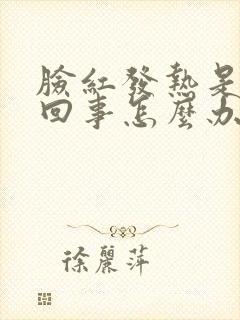 臉紅發熱是
回事怎麼办
徐麗萍